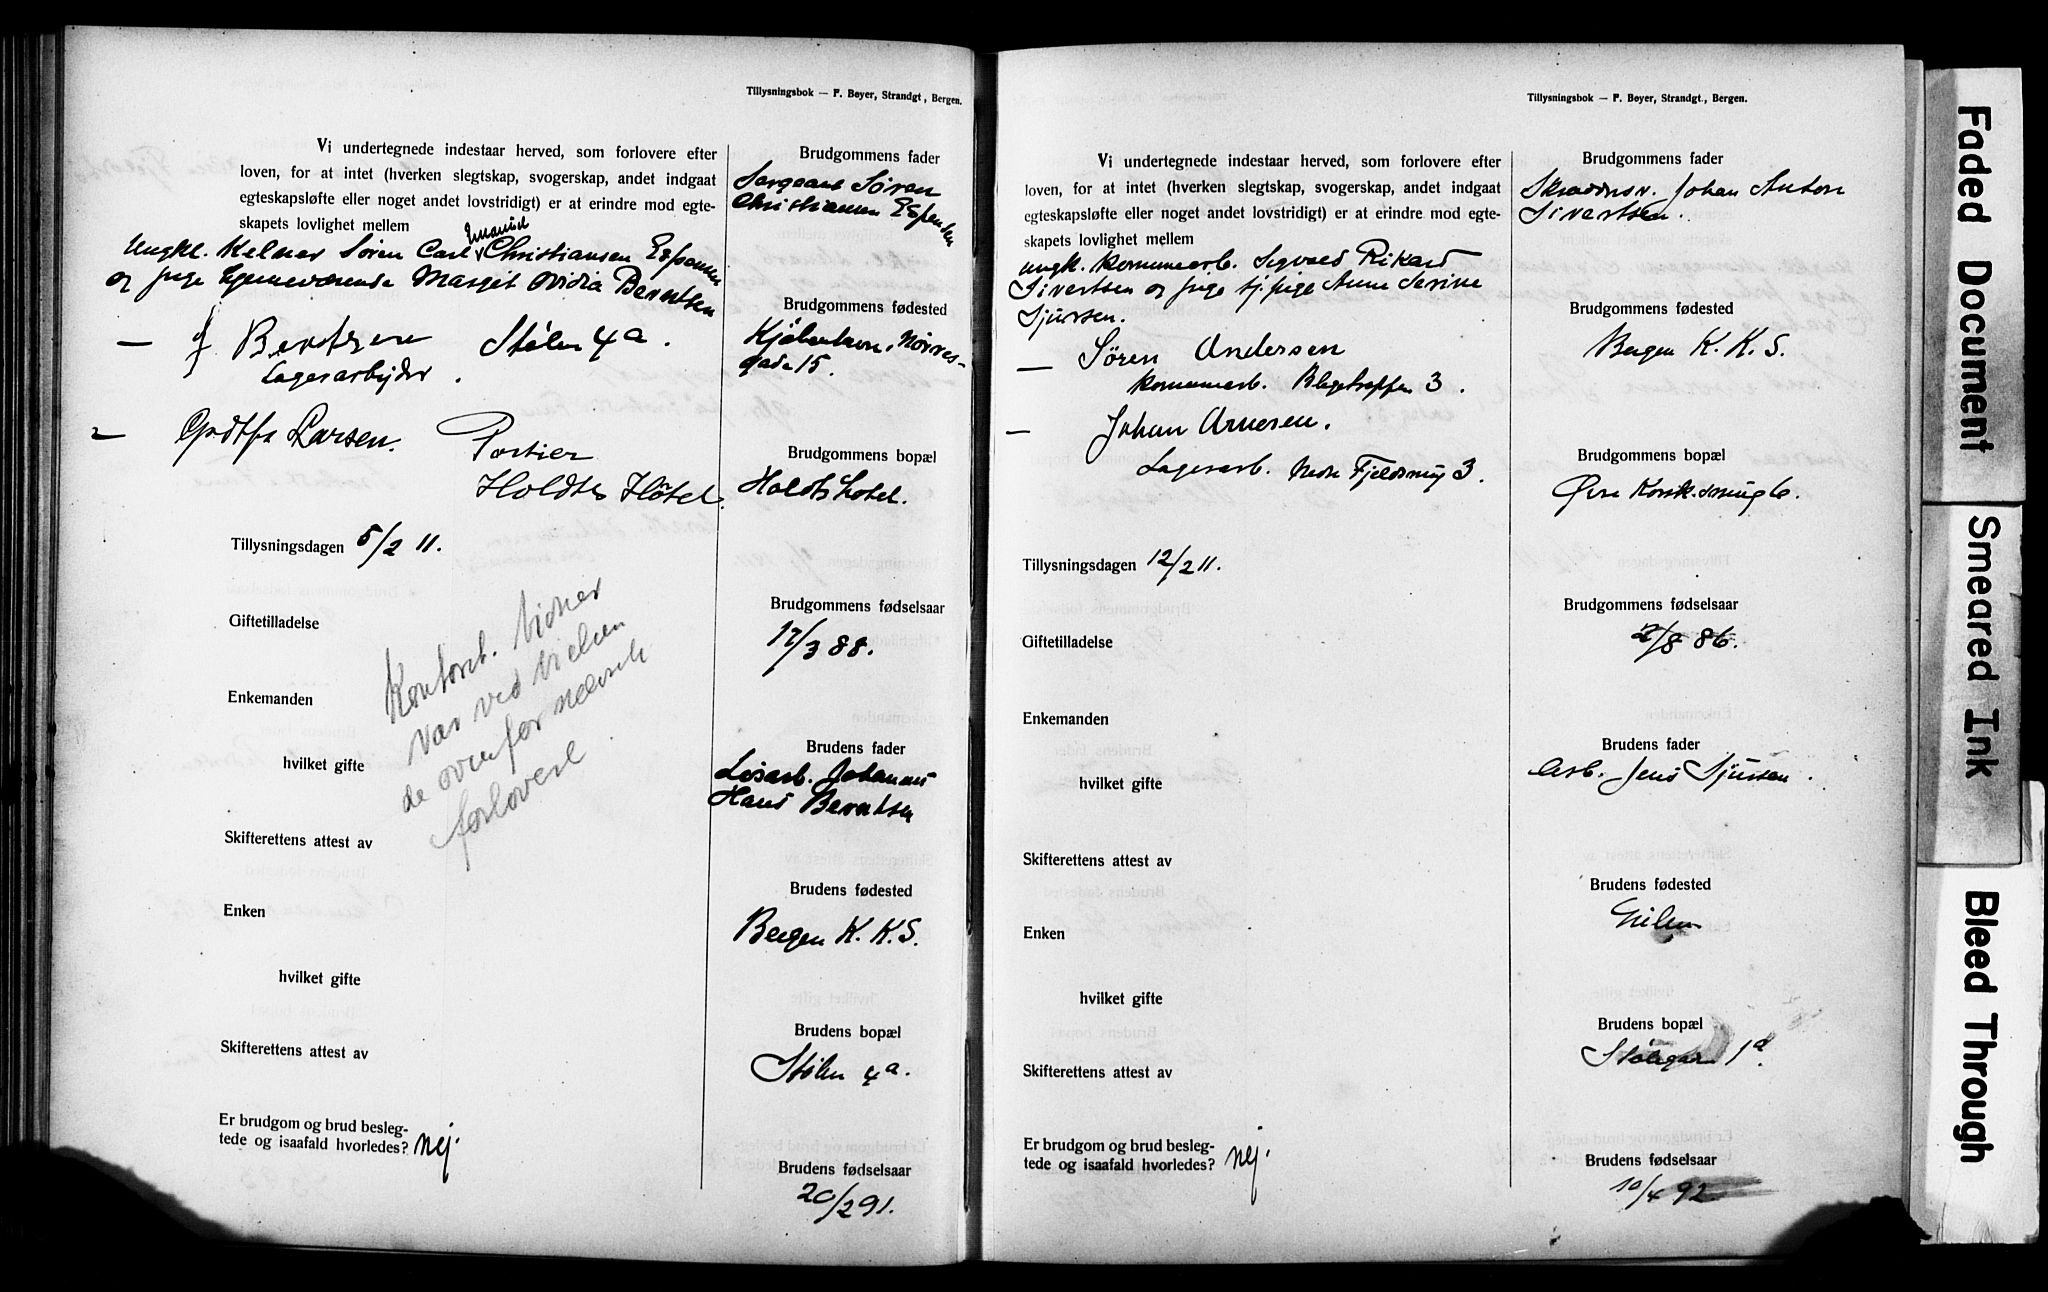 Tillysningsbok — F. Beyer, Strandgt, Bergen.
Vi undertegnede indestaar herved, som forlovere efter
loven, for at intet (hverken slegtskap, svogerskap, andet indgaat
egteskapsløfte eller noget andet lovstridigt) er at erindre mod egte-
skapets lovlighet mellem
Emanuel
Ungkl. Kelner Søren Carl Christiansen Espensen
og pige hjemmeværende Margit Ovidia Berntsen
— Berntsen Stølen 4a.
Lagerarbejder.
— Larsen. Portier
Holdts Hotel.
Tillysningsdagen 5/2 11.
Giftetilladelse
Enkemanden
hvilket gifte
Skifterettens attest av
Enken
hvilket gifte
Skifterettens attest av
Er brudgom og brud besleg-
tede og isaafald hvorledes? nej.
Kontorst. Vidner
var ved Vielsen
de ovenfor nævnte
forlovere
Brudgommens fader
Søren
Christiansen Espensen
Brudgommens fødested
Kjøbenhavn, Nørre-
gade 15.
Brudgommens bopæl
Holdts hotel.
Brudgommens fødselsaar
17/3 88.
Brudens fader
Løsarb. Johannes
Hans Berntsen
Brudens fødested
Bergen K. K. S.
Brudens bopæl
Stølen 4a.
Brudens fødselsaar
20/2 91.
Tillysningsbok — F. Beyer, Strandgt., Bergen.
Vi undertegnede indestaar herved, som forlovere efter
loven, for at intet (hverken slegtskap, svogerskap, andet indgaat
egteskapsløfte eller noget andet lovstridigt) er at erindre mod egte-
skapets lovlighet mellem
ungk. Komunearb. Sigvald Rikard
Sivertsen og pige tj.pige Anne Serine
Sjursen.
— Søren Andersen
komunearb. Blegetrappen 3.
— Johan Arnesen.
Lagerarb. Nedre Fjeldsmug 3.
Tillysningsdagen 12/2 11.
Giftetilladelse
Enkemanden
hvilket gifte
Skifterettens attest av
Enken
hvilket gifte
Skifterettens attest av
Er brudgom og brud besleg-
tede og isaafald hvorledes? nej.
Brudgommens fader
Skræddersv. Johan Anton
Sivertsen.
Brudgommens fødested
Bergen K. K. S.
Brudgommens bopæl
Øvre Korsk.smug 6.
Brudgommens fødselsaar
2/8 86.
Brudens fader
Arb. Jens Sjursen.
Brudens fødested
Brudens bopæl
Stølegaten 1d.
Brudens fødselsaar
10/4 92
Faded Document
Smeared Ink
Bleed Through